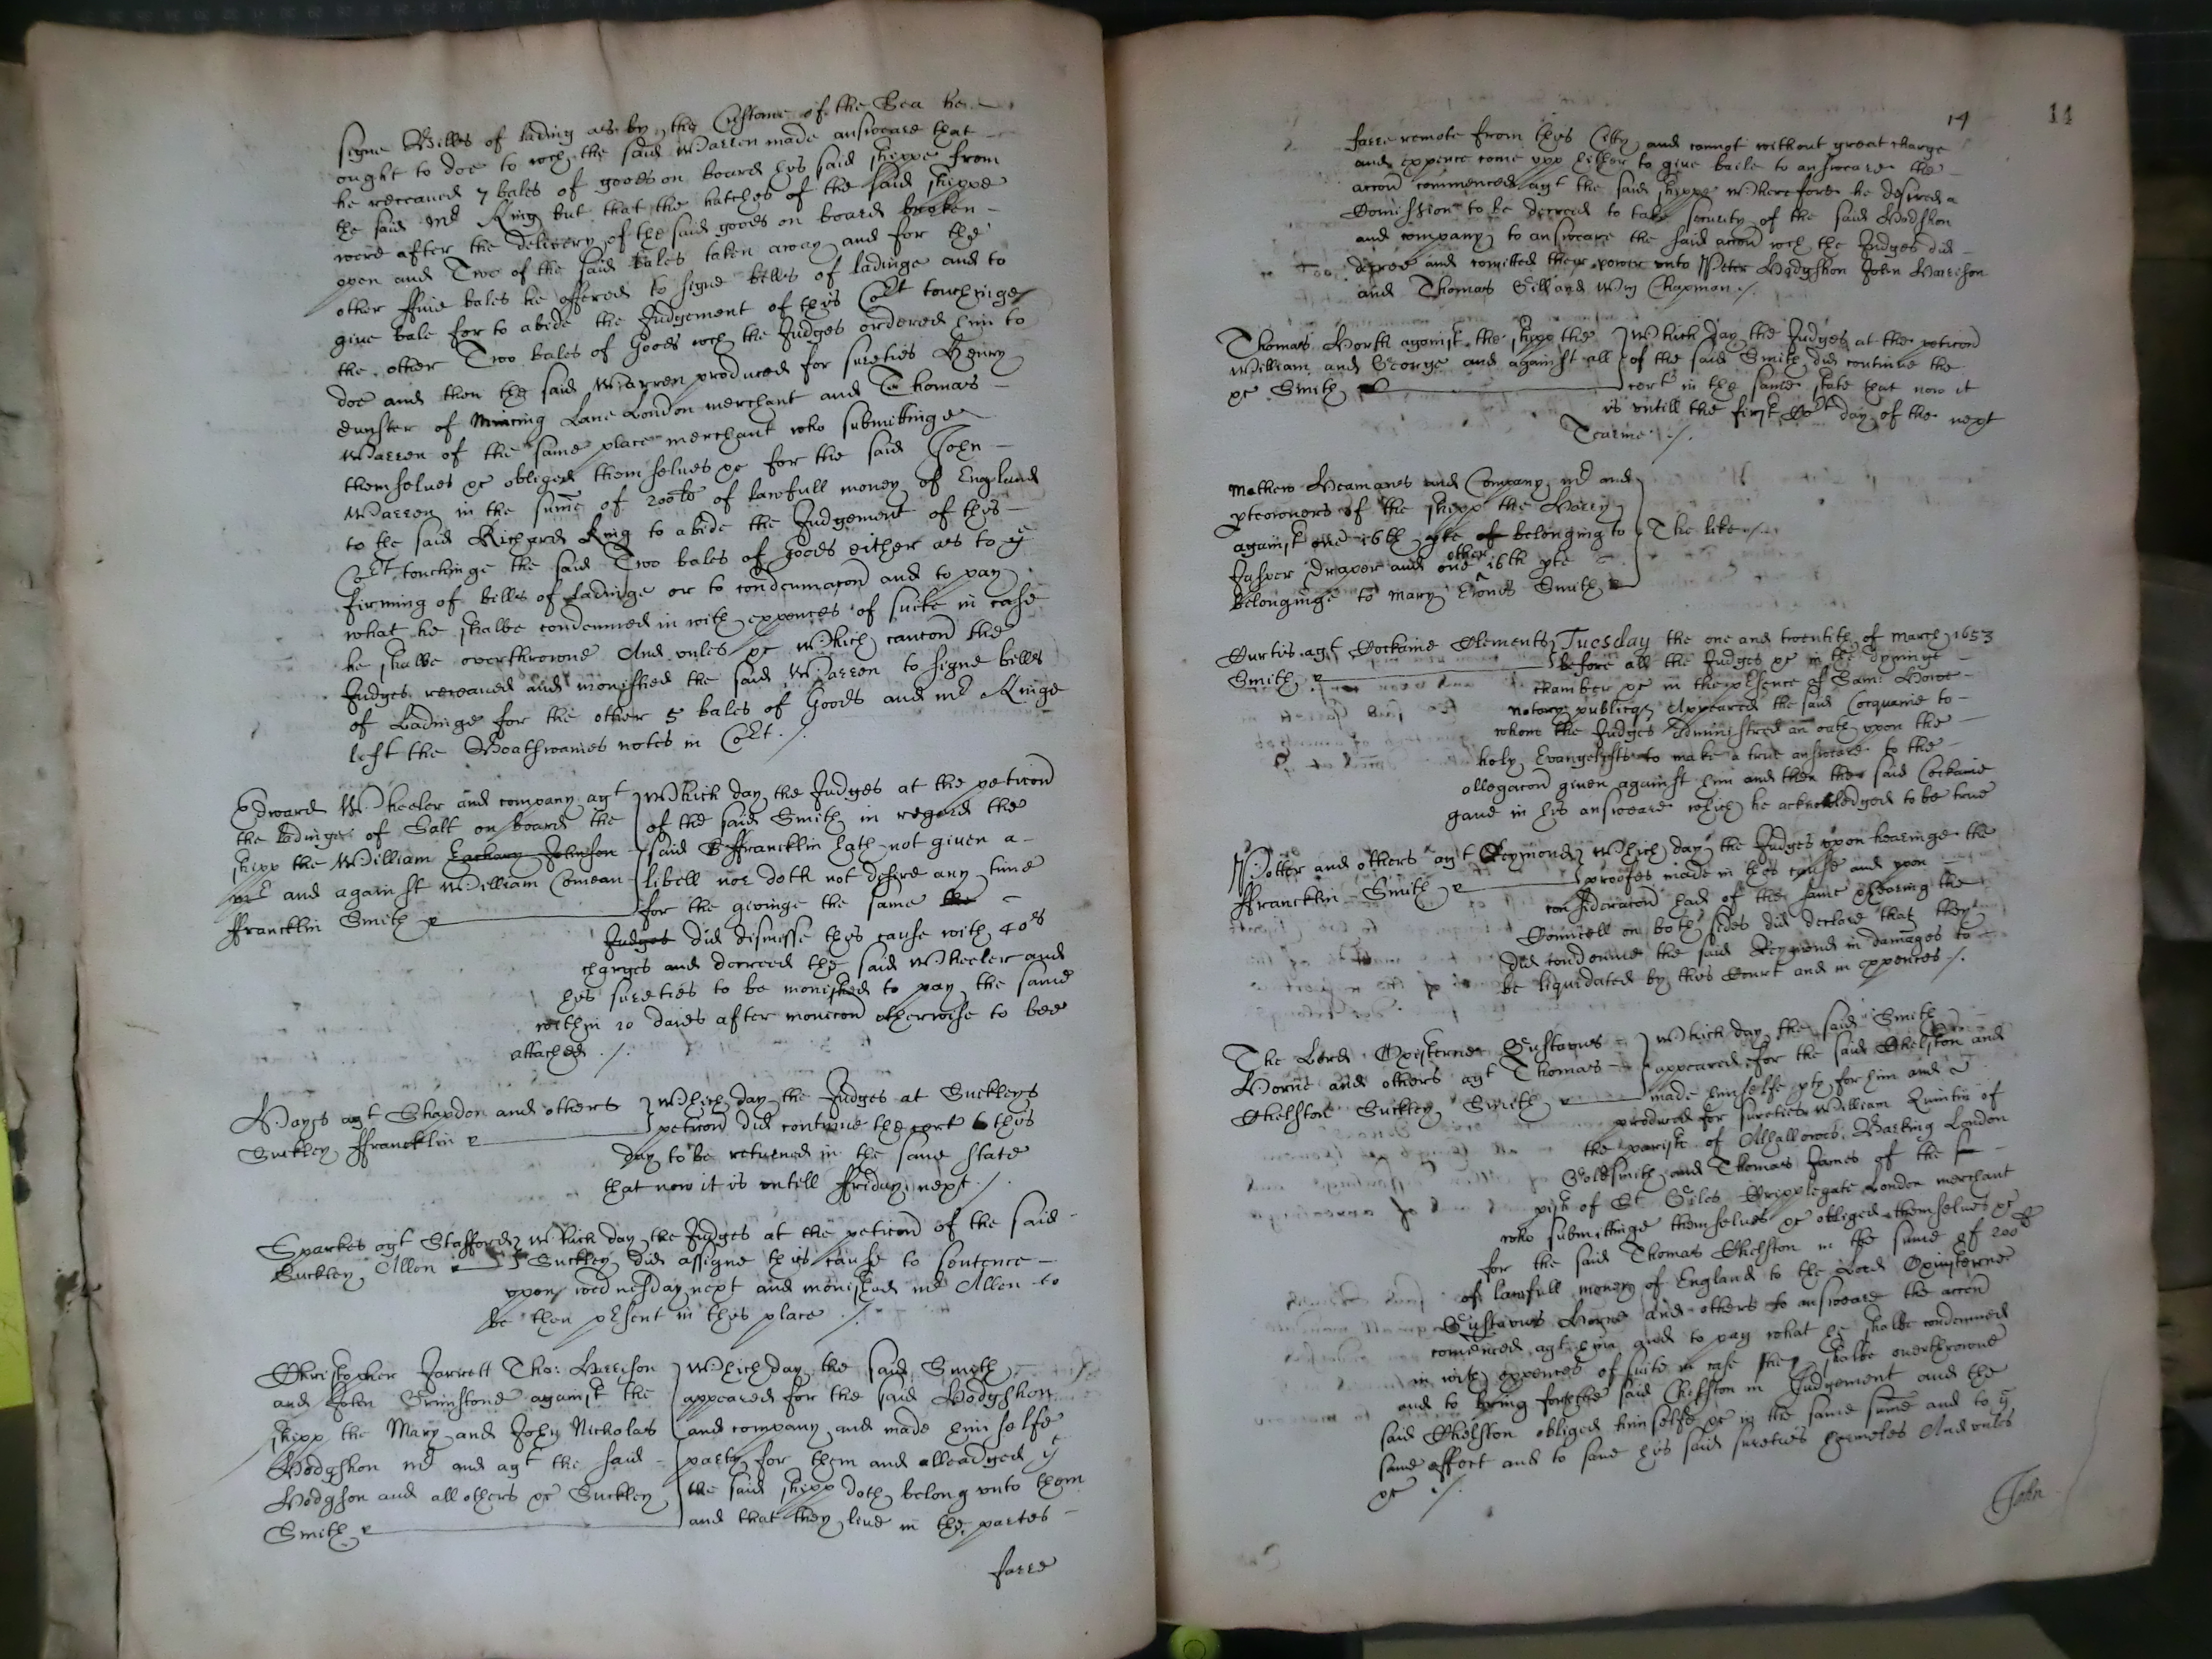 signe Bills of lading as by the Custome of the Sea he
ought to doe to wch the said Warren made answeare that
he receaued 7 bales of goods on board his said shippe from
the said Mr King but that the hatches of the said shippe
were after the delivery of the said goods on board broken
open and Two of the said bales taken away and for the
other ffiue bales he offered to signe bills of ladinge and to
giue bale for to abide the Judgement of this Cort touchinge
the other Two bales of Goods wch the Judges ordered him to
doe and then the said Warren produced for sureties Henry
Dunster of Mincing Lane London merchant and Thomas
Warren of the same place merchant who submittinge
themselues &c obliged themselues &c for the said John
Warren in the sume of 200 li of lawfull money of England
to the said Richard King to abide the Judgement of this
Cort touchinge the said Two bales of Goods either as to ye
firming of bills of Ladinge or to condemnacon and to pay
what he shalbe condemned in with expences of suite in case
he shalbe overthrowne And vnles &c Which caucon the
Judges receaued and monished the said Warren to signe bills
of Ladinge for the other 5 bales of Goods and Mr Kinge
left the Boatswaines notes in Cort ./
Edward Wheeler and company agt
the ladinge of Salt on board the
shipp the William Zachary Johnson
mr and against William Comean
ffrancklin Smith
Which day the Judges at the peticon
of the said Smith in regard the
said ffrancklin hath not given a
libell nor doth not desire any time
for the givinge the same the
Judges did dismisse this cause with 40s
charges and decreed the said Wheeler and
his sureties to be monished to pay the same
within 10 daies after monicon otherwise to bee
attached ./.
Hayes agt Shapdon and others
Suckley ffrancklin
Which day the Judges at Suckleys
peticon did continue the cert this
day to be returned in the same state
that now it is vntill ffriday next ./.
Sparkes agt Stafford
Suckley Allen
Which day the Judges at the peticon of the said
Suckley did assigne this cause to sentence
vpon wednesday next and monished Mr Allen to
be then present in this place ./.
Christopher Jarrett Tho: Harrison
and John Grimstone against the
shipp the Mary and John Nicholas
Hodgshon mr and agt the said
Hodgson and all others &c Suckley
Smith
Which day the said Smith
appeared for the said Hodgshon
and company and made himselfe
party for them and alleadged yt
the said shipp doth belong vnto them
and that they liue in the partes
farre
14 14
farre remote from this Citty and cannot without great charge
and expence come vpp hither to give baile to answeare the
accon commenced agt the said shippe Wherefore he desired a
Comission to be decreed to take security of the said Hodshon
and company to answeare the said accon wch the Judges did
decree and comitted their power vnto Peter Hodgshon John Harrison
and Thomas Gill and Wm Chapman ./.
Thomas North against the shipp the
William and George and against all
&c Smith
Which day the Judges at the peticon
of the said Smith did continue the
cert in the same state that now it
is vntill the first Cort day of the next
Tearme ./.
Mathew Heamanes and Company mr and
pteowners of the shipp the Harry
against one 16th pte of belonging to
Jasper Draper and one other 16th pte
belonginge to Mary Smith
The like ./.
Curtis agt Cockaine Clements
Smith
Tuesday the one and twentith of March 1653
before all the Judges &c in the dyninge
chamber &c in the presence of Sam: Howe
notary publiq Appeared the said Cocquaine to
whome the Judges administred an oath vpon the
holy Evangelists to make a true answeare to the
allegacon given against him and then the said Cockaine
gaue in his answeare which he acknowledged to be true
Potter and others agt Reymond
ffrancklin Smith
Which day the Judges vpon hearinge the
proofes made in this cause and vpon
consideracon had of the same hearing the
Councell on both sides did declare that they
did condemne the said Reymond in damages to
be liquidated by this Court and in expences ./.
The Lord Oxisterne Gustavus
Horne and others agt Thomas
Chelston Suckley Smith
Which day the said Smith
appeared for the said Chelston and
made himselfe pty for him and
produced for sureties William Quintin of
the parish of Alhallowes Barking London
Goldsmith and Thomas James of the
pish of St Giles Cripplegate London merchant
who submittinge themselues &c obliged themselues &c
for the said Thomas Chelston in the sume of 200 li
of lawfull money of England to the Lord Oxinsterne
Gustavus Horne and others to answeare the accon
comenced agt him and to pay what he shalbe condemned
in with expences of suite in case they shalbe overthrowne
and to bring forth the said Chelston in Judgement and the
said Chelston obliged himselfe &c in the same sume and to ye
same effect and to saue his said sureties harmeles And vnles
&c ./.
John